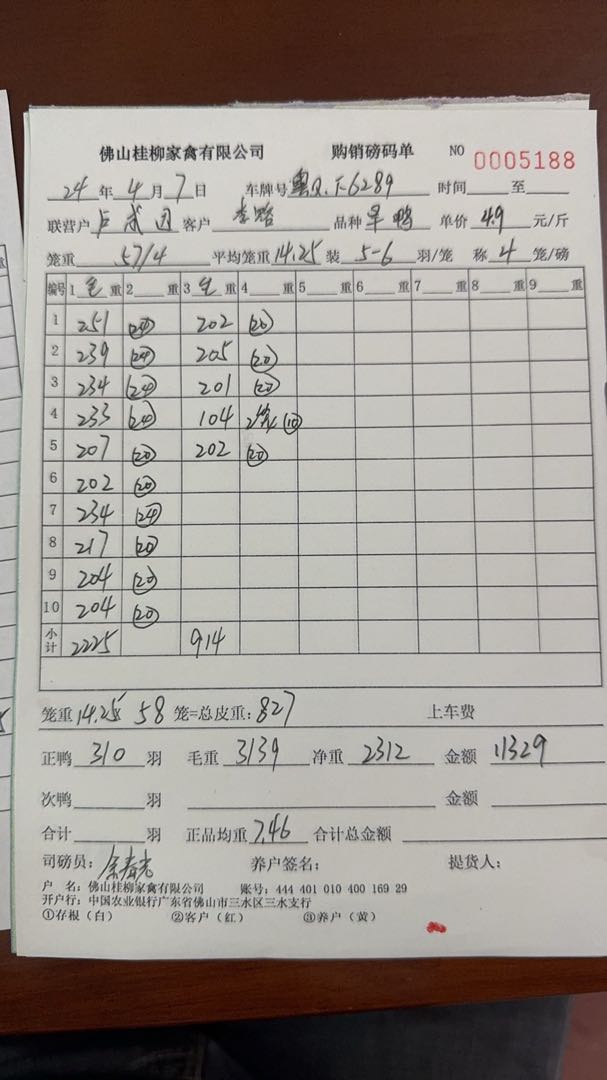 佛山桂柳家禽有限公司 购销磅码单 NO 0005188
24年4月7日 车牌号 粤Q.F6289 时间 至
联营户 客户 李路 品种 旱鸭 单价 4.9 元/斤
笼重 57/4 平均笼重 14.25 装 5-6 羽/笼 称 4 笼/磅
编号 1 毛 重 2 重 3 毛 重 4 重 5 重 6 重 7 重 8 重 9 重
1 251 (24) 202 (20)
2 239 (24) 205 (20)
3 234 (24) 201 (20)
4 233 (24) 104 2笼 (10)
5 207 (20) 202 (20)
6 202 (20)
7 234 (24)
8 217 (20)
9 204 (20)
10 204 (20)
小计 2225 914
笼重 14.25 58 笼=总皮重: 827 上车费
正鸭 310 羽 毛重 3139 净重 2312 金额 11329
次鸭 羽 金额
合计 羽 正品均重 7.46 合计总金额
司磅员: 养户签名: 提货人:
户 名: 佛山桂柳家禽有限公司 账号: 444 401 010 400 169 29
开户行: 中国农业银行广东省佛山市三水区三水支行
①存根（白） ②客户（红） ③养户（黄）